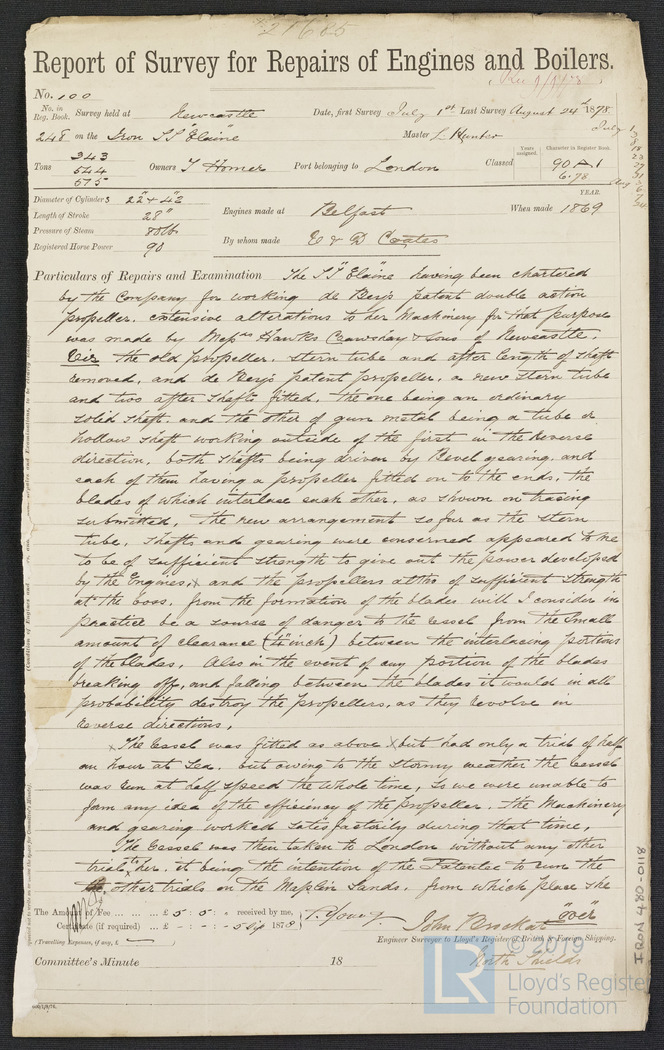 Report of Survey for Repairs of Engines and Boilers.
No. 100
No. in Reg. Book. Survey held at Newcastle Date, first Survey July 1st Last Survey August 24th 1878
248 on the Iron SS "Elaine" Master J. Hunter
Tons 343 544 575 Owners T Homer Port belonging to London Classed Years assigned. Character in Register Book. 90 A 1 6.78
July 1
Aug
YEAR.
Diameter of Cylinders 22" + 42
Length of Stroke 28"
Pressure of Steam 80lb
Registered Horse Power 90
Engines made at Belfast When made 1869
By whom made V & D Coates
Particulars of Repairs and Examination The SS "Elaine" having been chartered
by the Company for working de Bay's patent double action
propeller. extensive alterations to her Machinery for that purpose
was made by Messrs Hawks Crawshay & Sons of Newcastle.
Viz the old propeller, stern tube and after length of shaft
removed, and de Bay's patent propeller, a new stern tube
and two after shafts fitted, the one being an ordinary
solid shaft, and the other of gun metal being a tube or
hollow shaft working outside of the first in the reverse
direction, both shafts being driven by Bevel gearing, and
each of them having a propeller fitted on to the ends, the
blades of which interlace each other, as shown on tracing
submitted, The new arrangement so far as the Stern
tube, shafts and gearing were concerned appeared to me
to be of sufficient strength to give out the power developed
by the Engines, x and the propellers altho of sufficient strength
at the boss, from the formation of the blades will I consider in
practice be a source of danger to the vessel from the small
amount of clearance (¼ inch) between the interlacing portions
of the blades, Also in the event of any portion of the blades
breaking off, and falling between the blades it would in all
probability destroy the propellers, as they revolve in
reverse directions.
x The vessel was fitted as above x but had only a trial of half
an hour at sea, but owing to the stormy weather the vessel
was run at half speed the whole time, so we were unable to
form any idea of the efficiency of the propeller. The Machinery
and gearing worked satisfactorily during that time,
The vessel was then taken to London without any other
trial to her, it being the intention of the Patentee to run the
other trials on the Maplin Sands, from which place she
The Amount of Fee ... £ 5 : 0 : " received by me,
Certificate (if required) .. £ - : - : - 5 Sep 1878
(Travelling Expenses, if any, £ )
T. Young
John Brockat "over"
Engineer Surveyor to Lloyd's Register of British & Foreign Shipping.
North Shields
Committee's Minute 18
IRON 480-0118
© 2019
LR
Lloyd's Register
Foundation